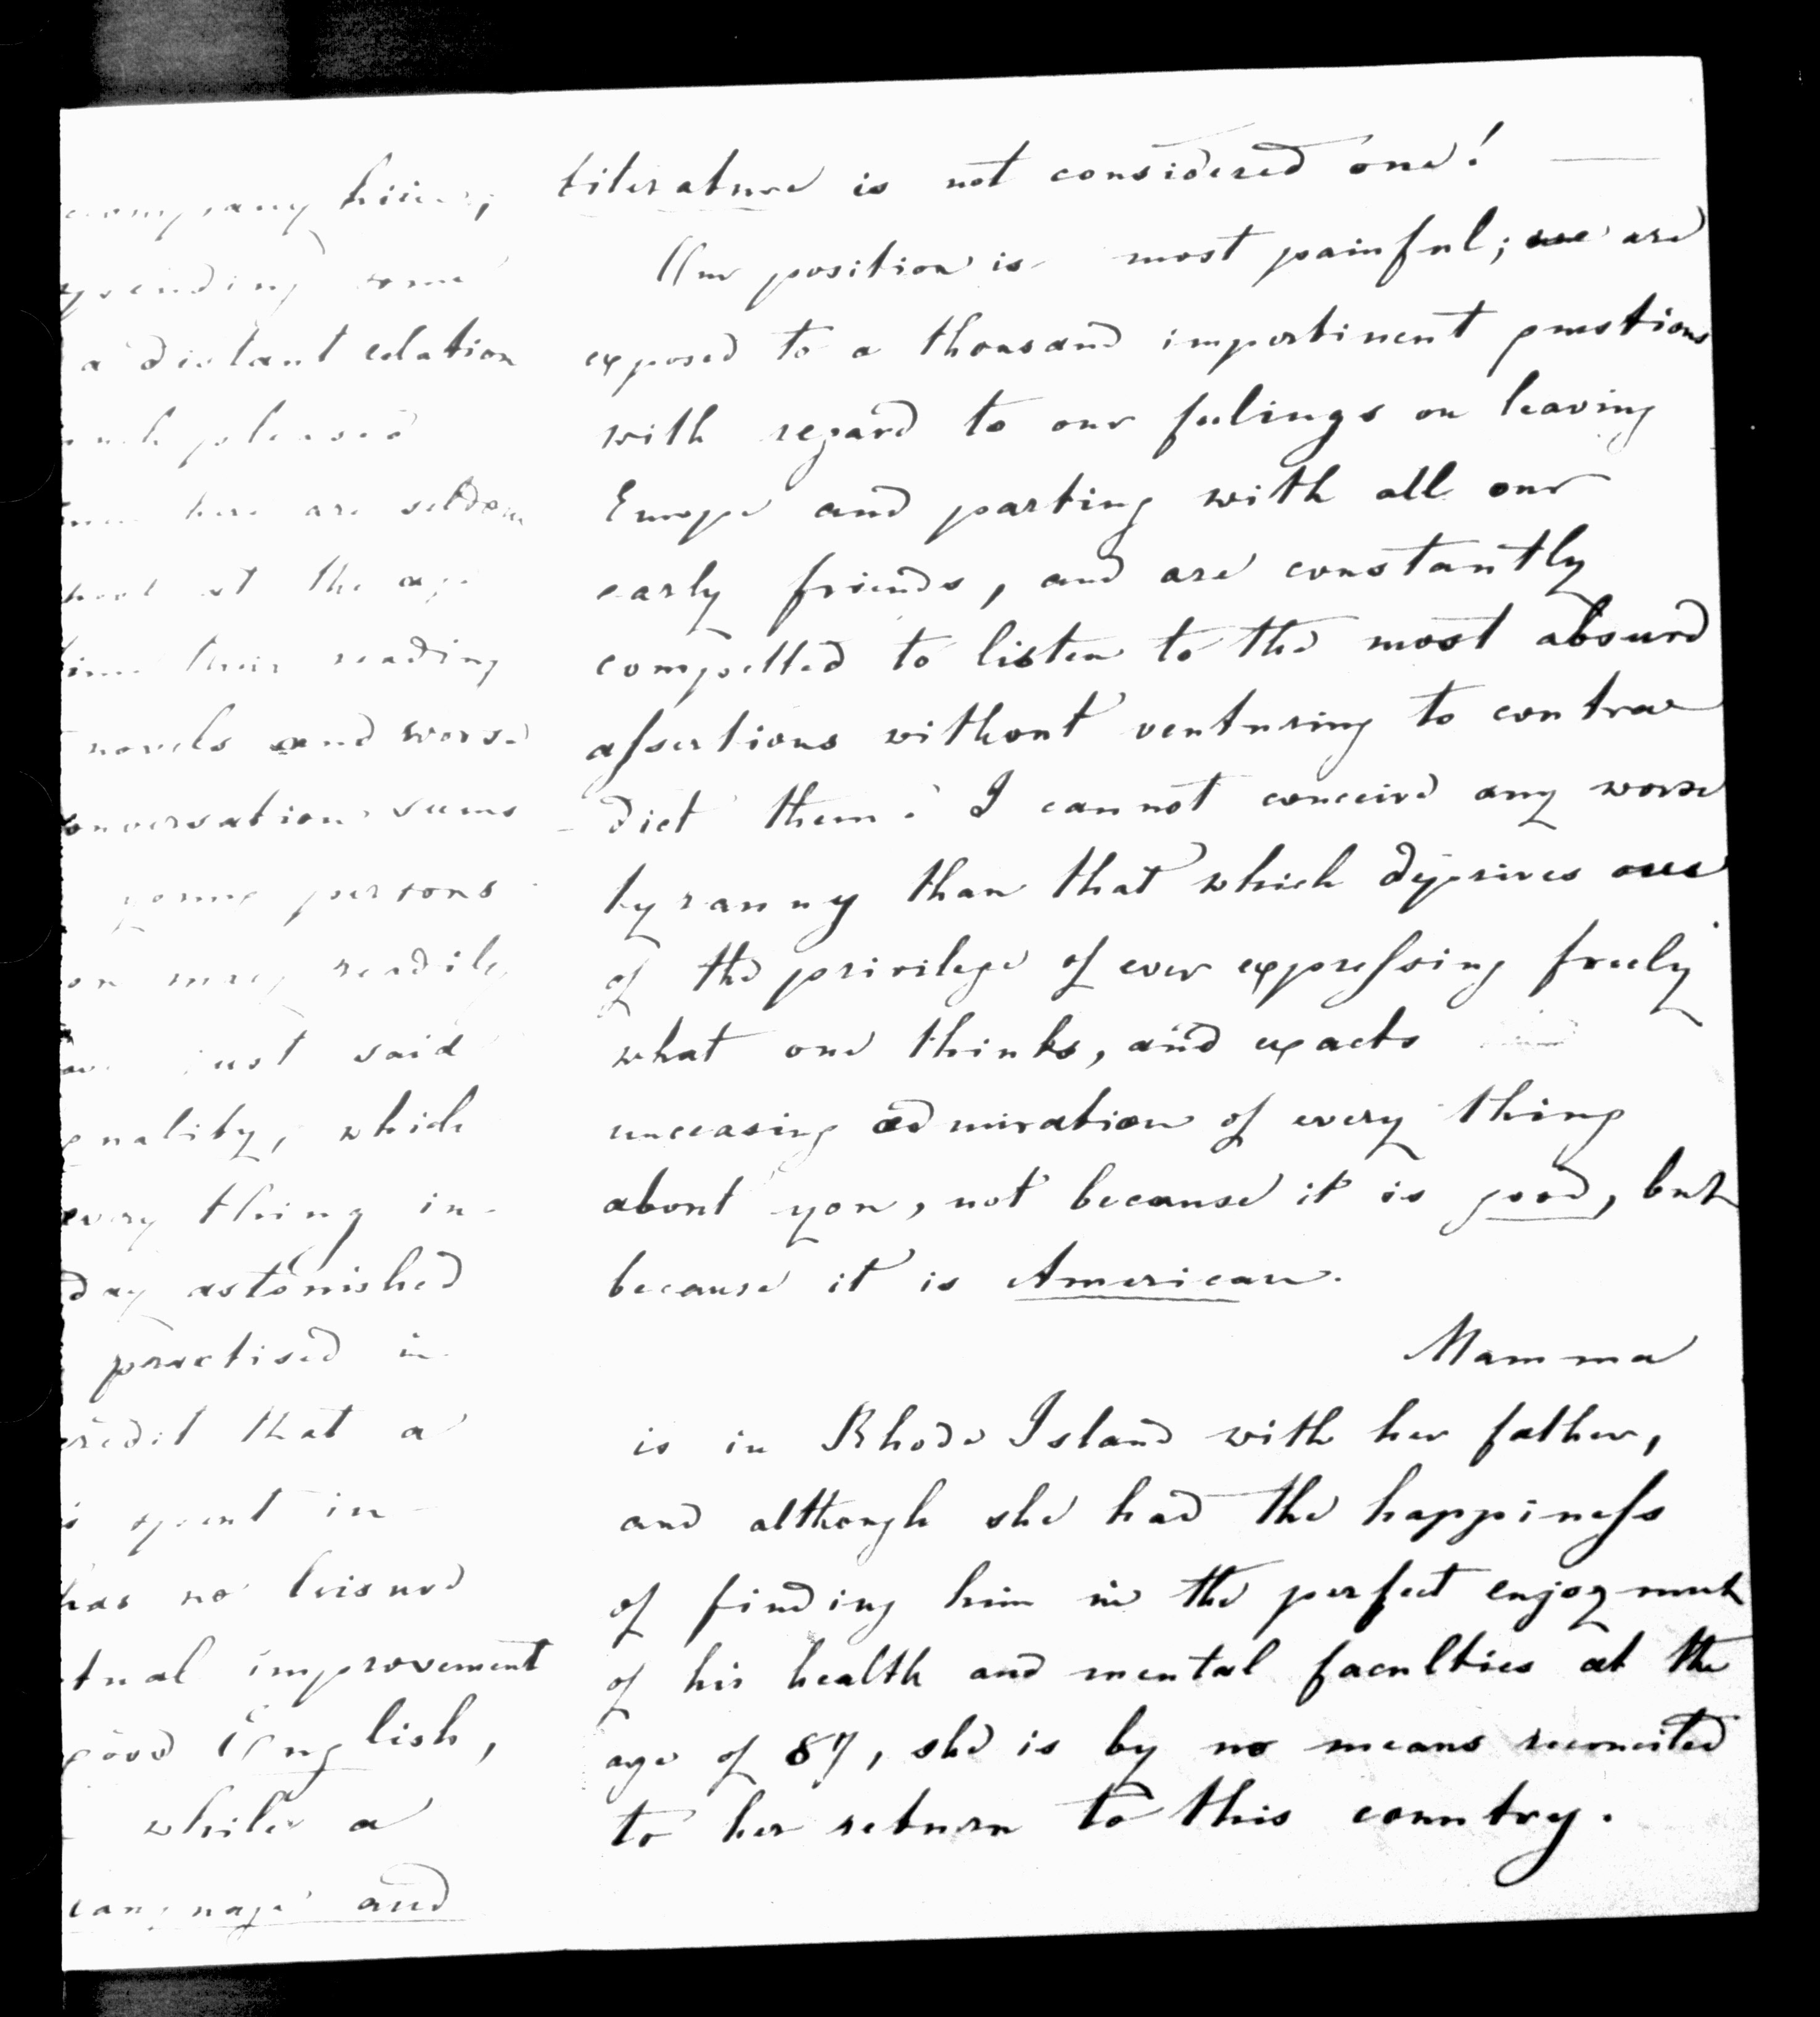 company
some
a distant relation
pleased
here are seldom
at the age
time their reading
novels and worse
conversation seems
young persons
may readily
just said
quality, which
every thing in-
day astonished
practised in
credit that a
spent in
has no leisure
tual improvement
good English,
while a
language and
literature is not considered one! —
Our position is most painful; we are
exposed to a thousand impertinent questions
with regard to our feelings on leaving
Europe and parting with all our
early friends, and are constantly
compelled to listen to the most absurd
assertions without venturing to contra
dict them. I cannot conceive any worse
tyranny than that which deprives one
of the privilege of ever expressing freely
what one thinks, and exacts
unceasing admiration of every thing
about you, not because it is good, but
because it is American.
Mamma
is in Rhode Island with her father,
and although she had the happiness
of finding him in the perfect enjoyment
of his health and mental faculties at the
age of 87, she is by no means reconciled
to her return to this country.